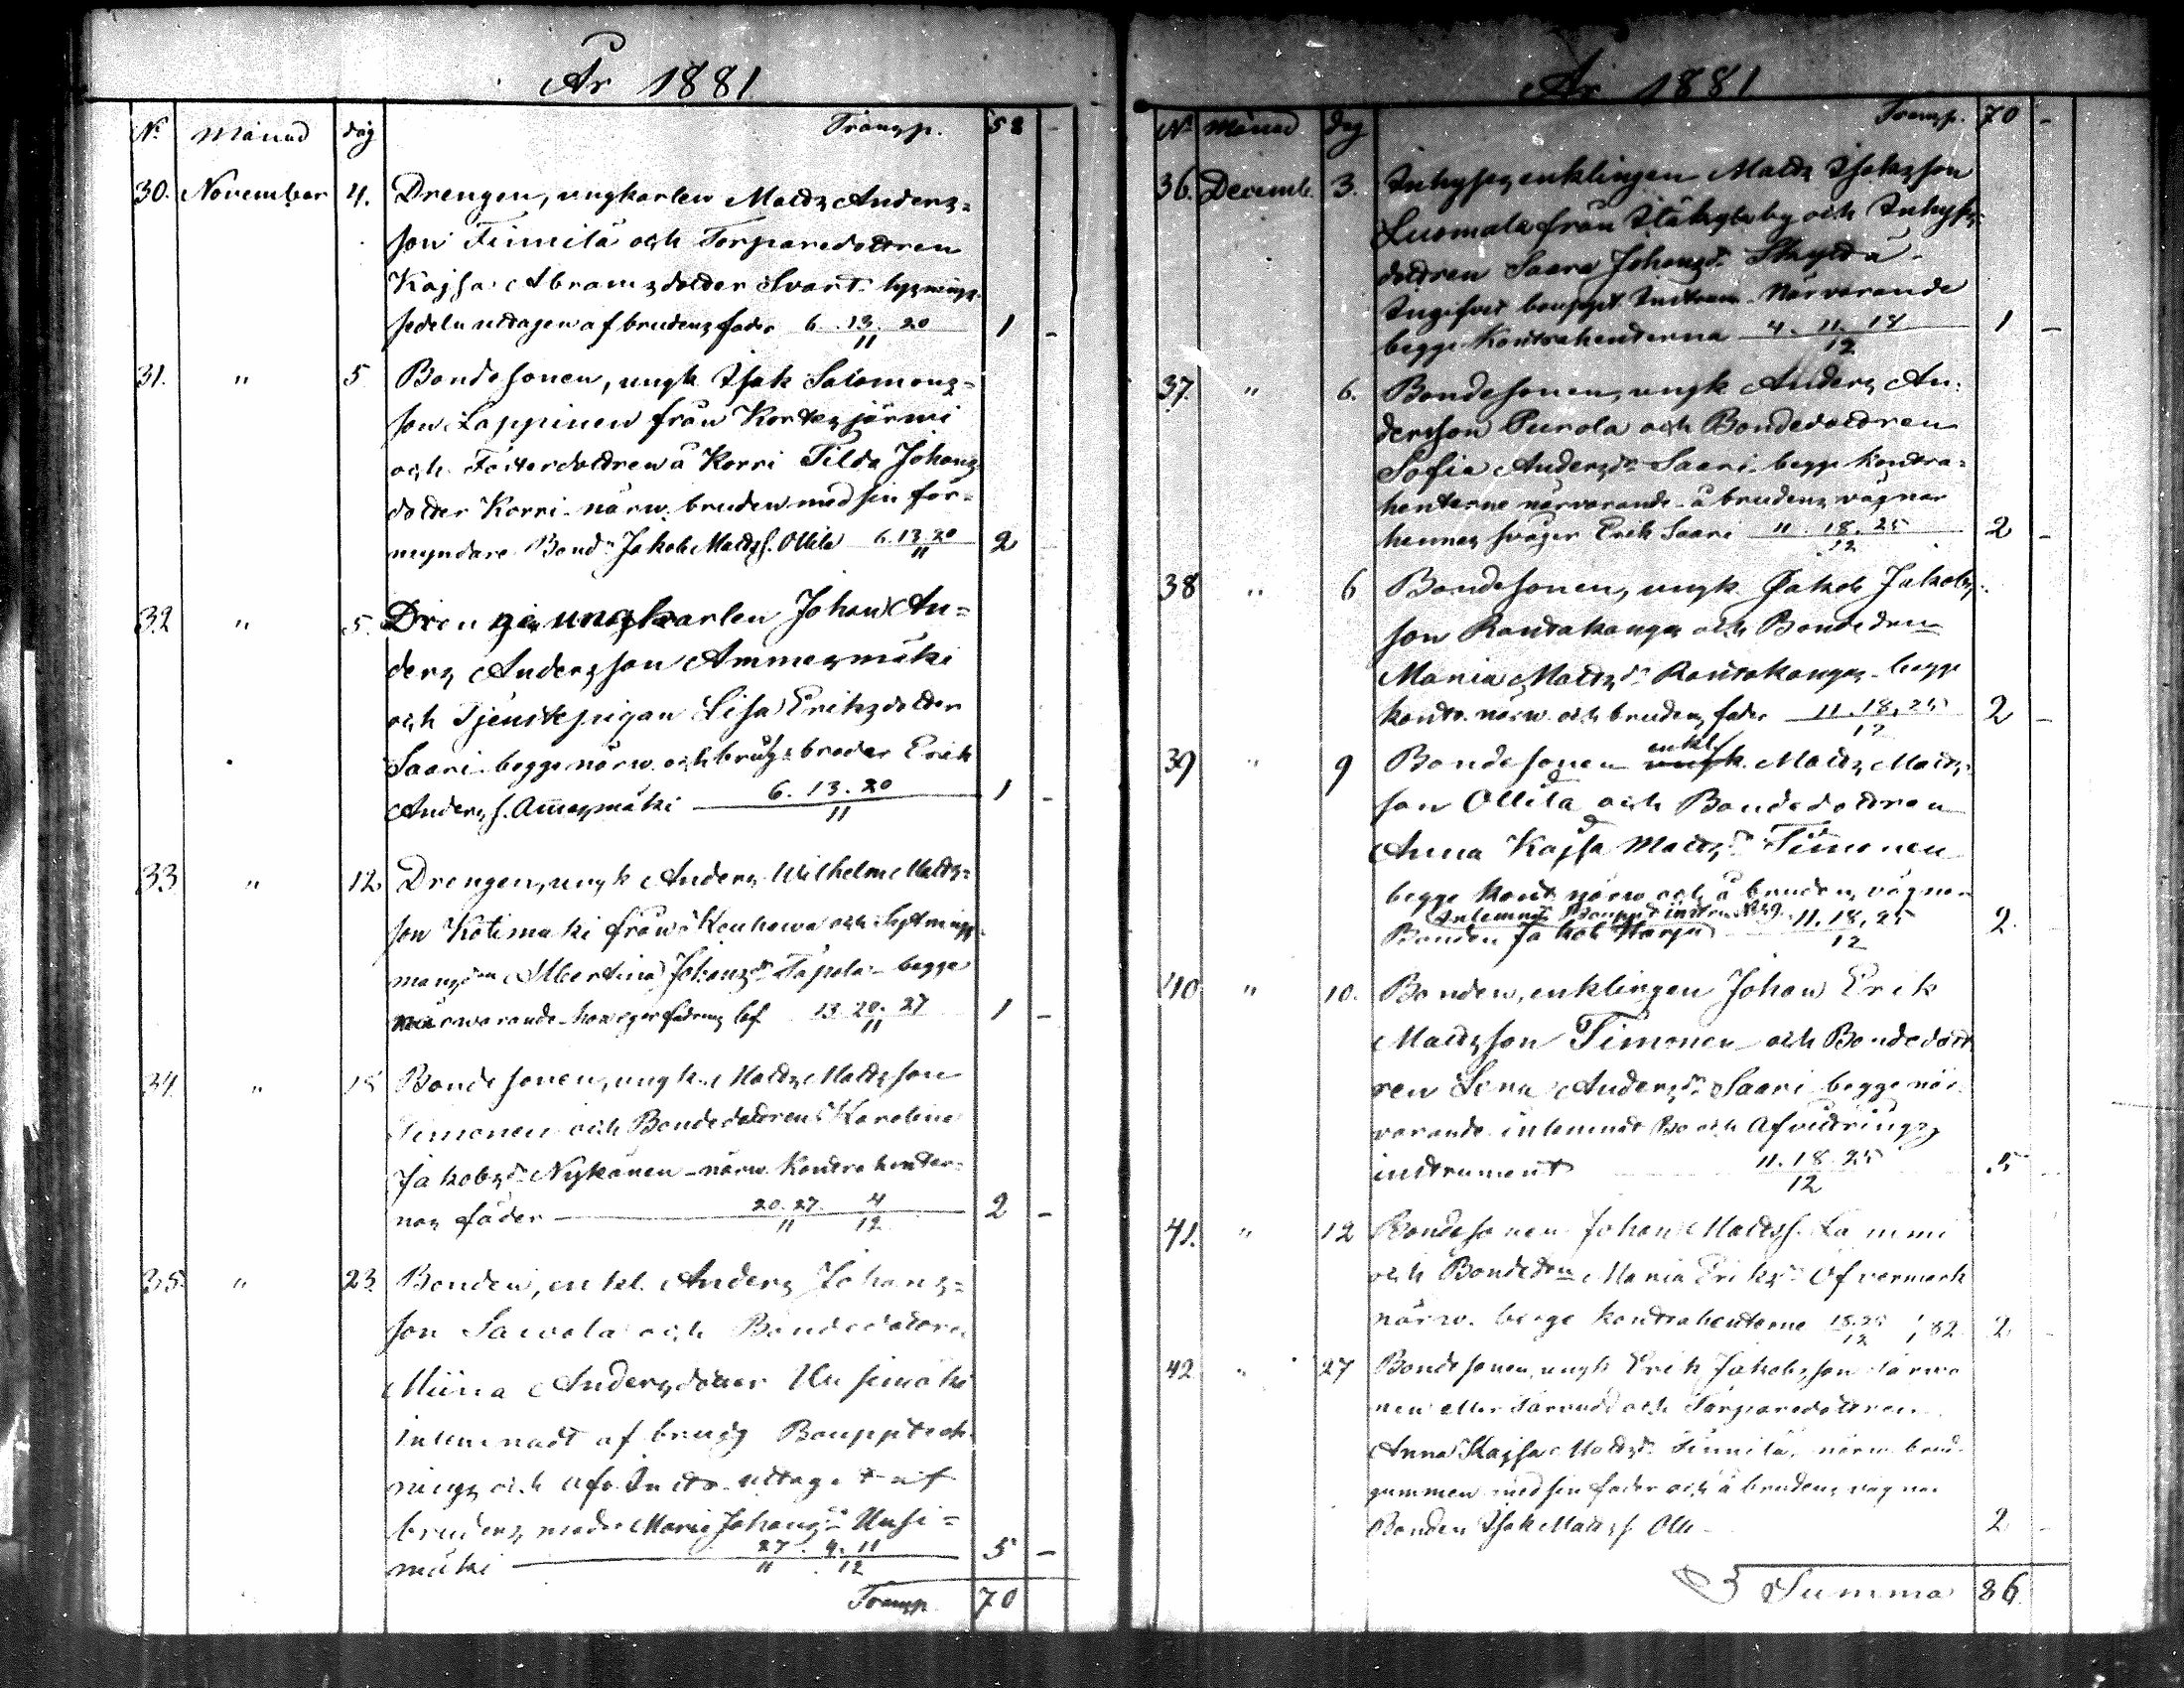 År 1881
No Månad dag Transp. 58 -
30. November 4. Drengen, ungkarlen Matts Anders=
son Finnilä och Torparedottren
Kajsa Abramsdotter Svart. lysnings
sedeln uttagen af brudens fader 6. 13. 20 1 -
11
31. " 5 Bondesonen, ungk. Isak Salomons=
son Lappinen från Kortesjärwi
och Fosterdottren å Korri Tilda Johans
dotter Korri. närw. bruden med sin för=
myndare Bond. Jakob Matts. Ollila 6. 13. 20 2
11
32 " 5. Drengen ungkarlen Johan An=
ders Andersson Ammesmäki
och Tjenstepigan Lisa Eriksdotter
Saari. begge närw. och brudg:s broder Erik
Anders s. Ammesmäki 6. 13. 20 1 -
11
33 " 12. Drengen, ungk Anders Wilhelm Matts=
son Kotimäki från Kauhawa och
Albertina Johansdr Tapola - begge
närwarande. 13. 20. 27 1 -
11
34. " 15 Bondesonen, ungk. Matts Mattsson
Timonen och Bondedottren Karolina
Jakobsdr Nykänen - närw. Kontrahenter=
nas fäder 20. 27. 4 2 -
11 12
35. " 23. Bonden, enkl. Anders Johans=
son Sawola och Bondedottren
Miina Andersdotter Uusimäki
inlemnadt af brudg Bouppteck
nings och afv. Instr. uttaget af
brudens moder Maria Johansdr Uusi=
mäki 27. 4. 11 5 -
11 12
Transp. 70
År 1881
No Månad dag Transp. 70 -
36. Decemb. 3. Inhyses enklingen Matts Isaksson
Luomala från by och Inhyses
dottren Saara Johansdr
Ingifvit bouppt. Instrum. Närvarande
begge Kontrahenterna 4. 11. 18 1 -
12
37. " 6. Bondesonen, ungk Anders An=
dersson Purola och Bondedottren
Sofia Andersdr Saari. begge kontra=
henterne närvarande. å brudens vägnar
hennes svåger Erik Saari 11. 18. 25 2 -
12
38 " 6 Bondesonen, ungk. Jakob Jakobs
son Rantakangas och Bondedrn
Maria Mattsdr Rantakangas. begge
kontr. närw. och brudens fader 11. 18. 25 2 -
12
39 " 9 Bondesonen ungk. enkl. Matts Matts
son Ollila och Bondedottren
Anna Kajsa Mattsdr Timonen
begge Kontr närw. och å brudens vägnar
Inlemnadt Bouppt. instrum.
Bonden Jakob Harju 11. 18. 25 2
12
40 " 10. Bonden, enklingen Johan Erik
Mattsson Timonen och Bondedott
ren Lena Andersdr Saari begge när
varande. inlemnadt Bo och Afvittrings
instrument 11. 18. 25 5
12
41. " 12 Bondesonen Johan Mattss. Lammi
och Bondedrn Maria Eriksdr Öfvermark
närw. begge kontrahenterne 18. 25 1/82 2
12
42 " 27 Bondesonen, ungk Erik Jakobsson
nen eller och Torparedottren
Anna Kajsa Mattsdr Finnilä, närw. brud=
gummen med sin fader och å brudens vägnar
Bonden Isak Matts s. 2 -
Summa 86.